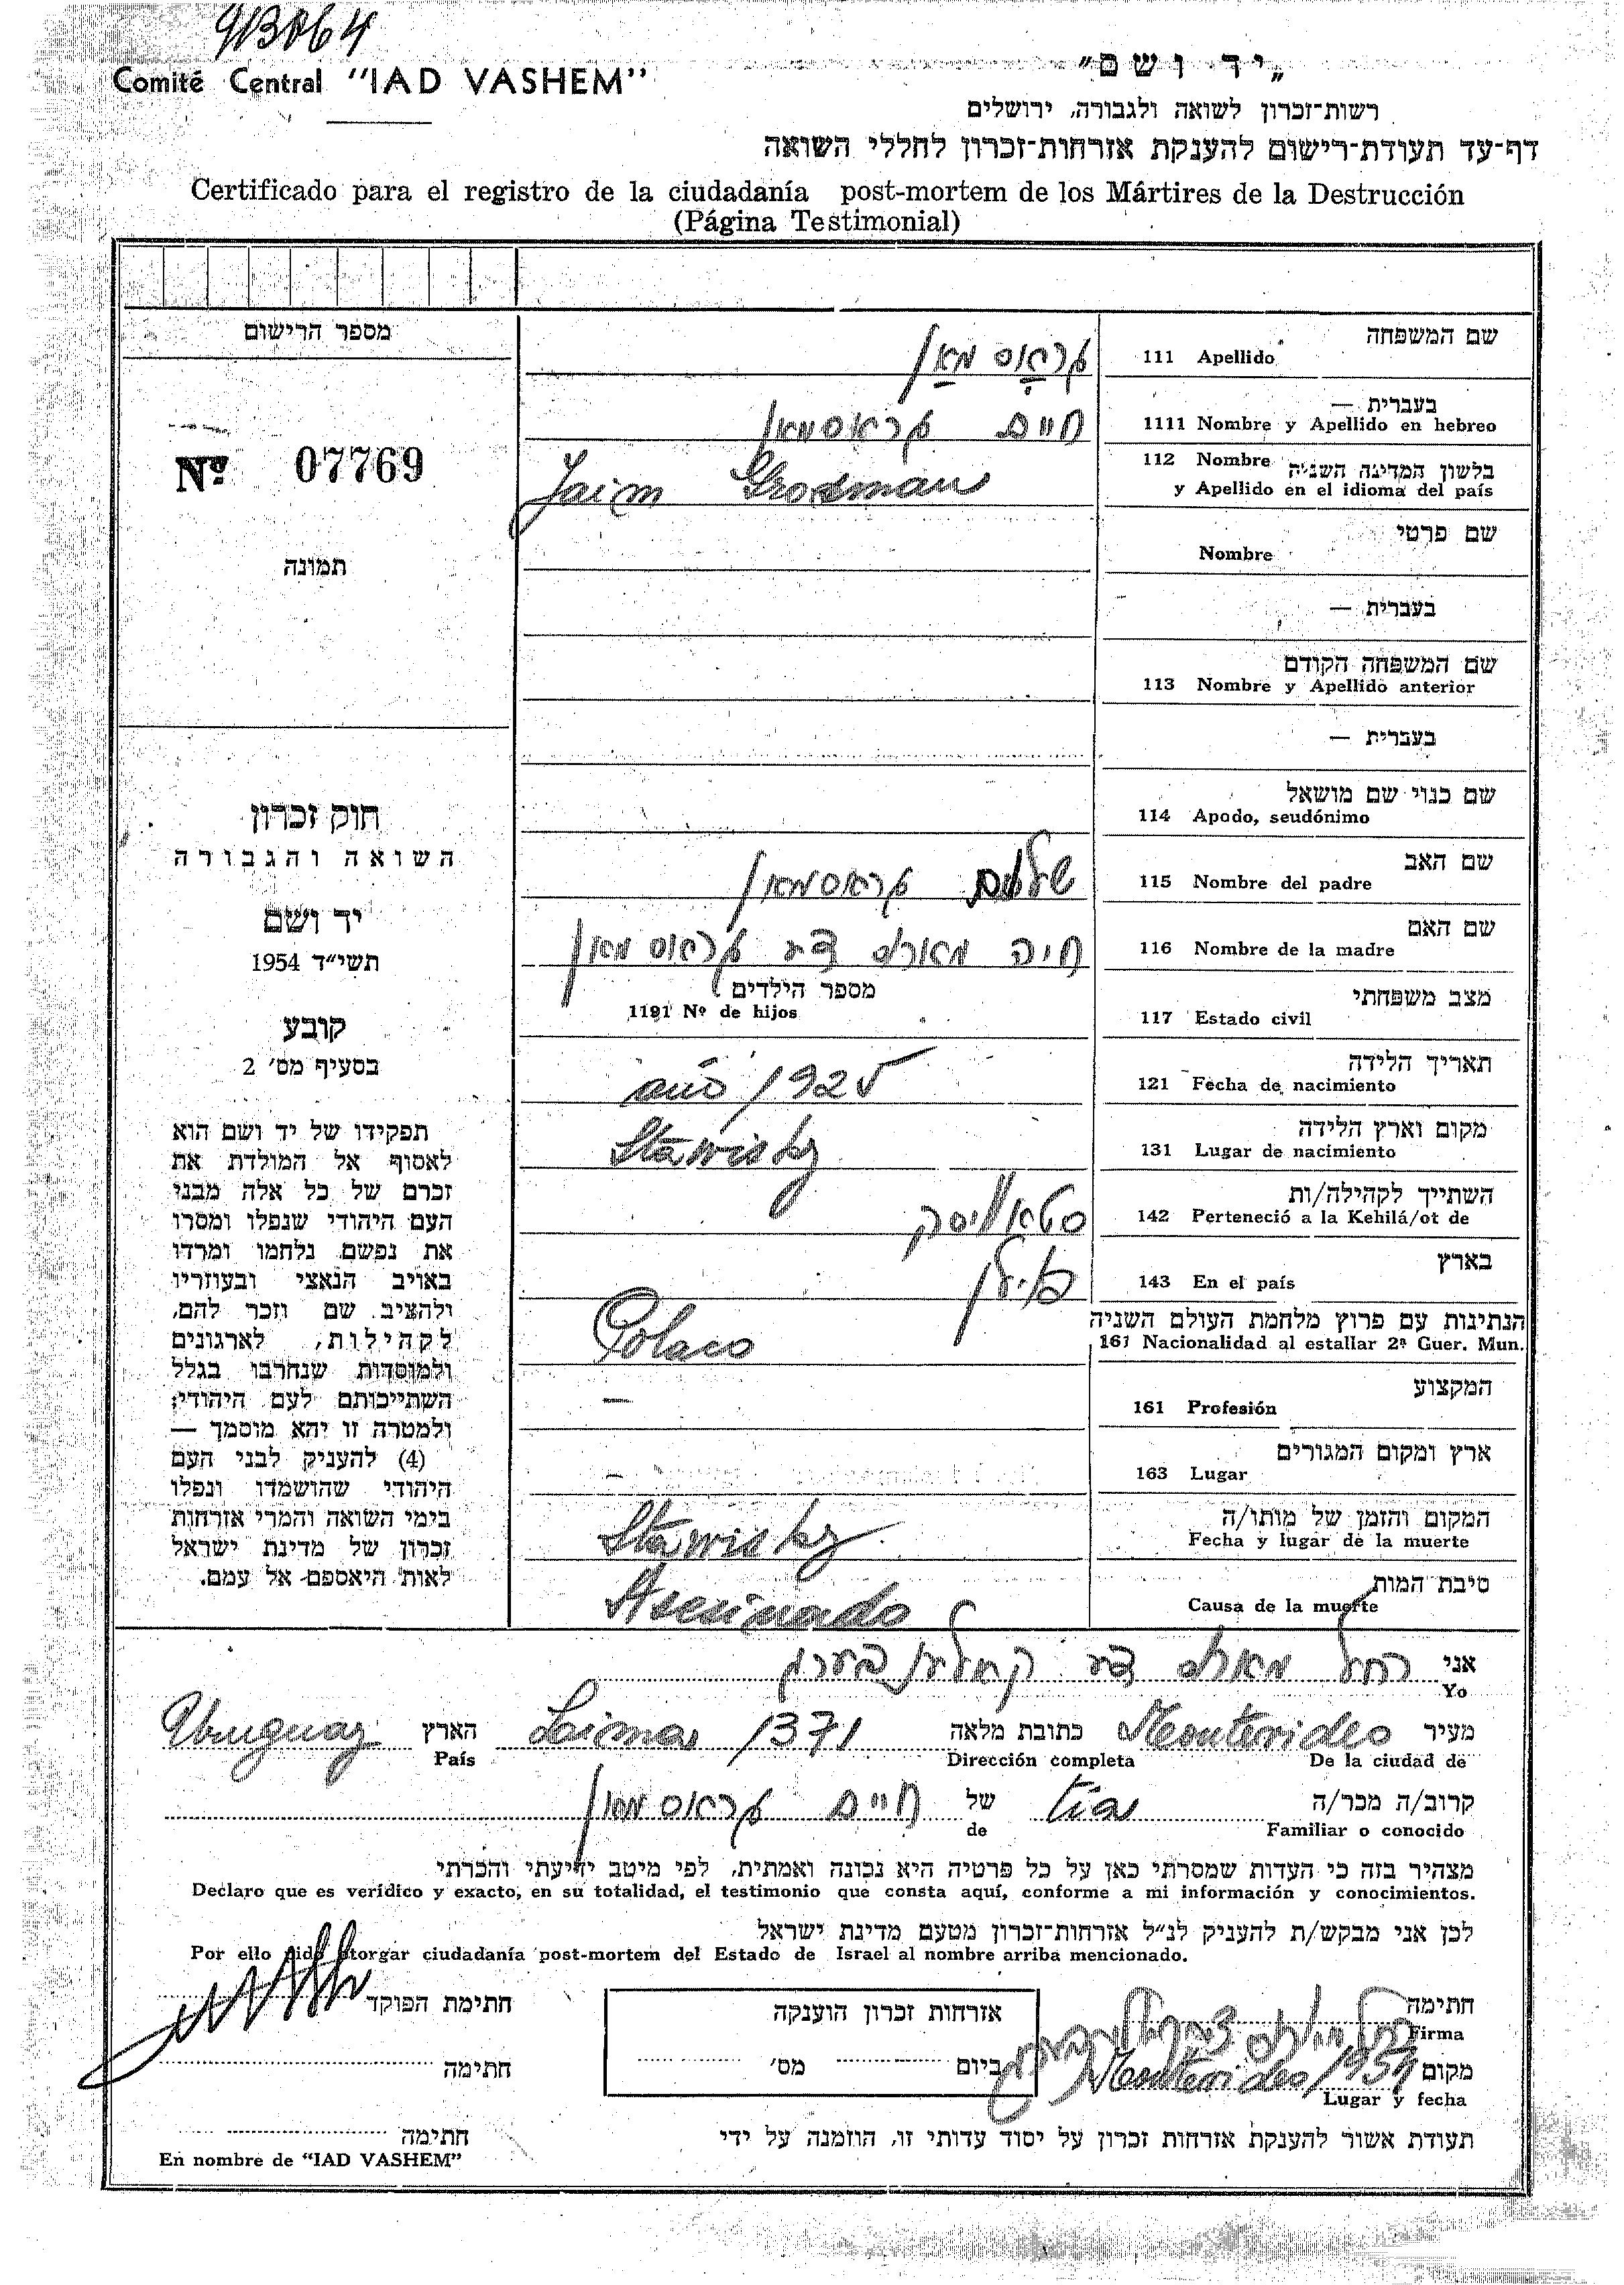 913064
Comité Central "IAD VASHEM"
„יד ושם"
רשות־זכרון לשואה ולגבורה, ירושלים
דף־עד תעודת־רישום להענקת אזרחות־זכרון לחללי השואה
Certificado para el registro de la ciudadanía post-mortem de los Mártires de la Destrucción
(Página Testimonial)
מספר הרישום
Nº 07769
תמונה
חוק זכרון
השואה והגבורה
יד ושם
תשי״ד 1954
קובע
בסעיף מס׳ 2
תפקידו של יד ושם הוא
לאסוף אל המולדת את
זכרם של כל אלה מבני
העם היהודי שנפלו ומסרו
את נפשם, נלחמו ומרדו
באויב הנאצי ובעוזריו
ולהציב שם וזכר להם,
לקהילות, לארגונים
ולמוסדות שנחרבו בגלל
השתייכותם לעם היהודי;
ולמטרה זו יהא מוסמך —
(4) להעניק לבני העם
היהודי שהושמדו ונפלו
בימי השואה והמרי אזרחות
זכרון של מדינת ישראל
לאות היאספם אל עמם.
שם המשפחה
111 Apellido גראָסמאַן
בעברית —
1111 Nombre y Apellido en hebreo חיים גראסמאן
112 Nombre בלשון המדינה השניה
y Apellido en el idioma del país Jaim Grosman
שם פרטי
Nombre
בעברית —
שם המשפחה הקודם
113 Nombre y Apellido anterior
בעברית —
שם כנוי שם מושאל
114 Apodo, seudónimo
שם האב
115 Nombre del padre שלום גראסמאן
שם האם
116 Nombre de la madre חיה מארק דע גראסמאן
מצב משפחתי
117 Estado civil
מספר הילדים
1191 Nº de hijos
תאריך הלידה
121 Fecha de nacimiento año 1925
מקום וארץ הלידה
131 Lugar de nacimiento Stawisky
השתייך לקהילה/ות
142 Perteneció a la Kehilá/ot de סטאוויסק
בארץ
143 En el país פוילן
הנתינות עם פרוץ מלחמת העולם השניה
161 Nacionalidad al estallar 2ª Guer. Mun. Polaco
המקצוע
161 Profesión —
ארץ ומקום המגורים
163 Lugar
המקום והזמן של מותו/ה
Fecha y lugar de la muerte Stawisky
סיבת המות
Causa de la muerte Asesinado
אני רחל מארק דע
Yo
מעיר Montevideo כתובת מלאה 1371 הארץ Uruguay
De la ciudad de Dirección completa País
קרוב/ה מכר/ה tía של חיים גראסמאן
Familiar o conocido de
מצהיר בזה כי העדות שמסרתי כאן על כל פרטיה היא נכונה ואמתית, לפי מיטב ידיעתי והכרתי
Declaro que es verídico y exacto, en su totalidad, el testimonio que consta aquí, conforme a mi información y conocimientos.
לכן אני מבקש/ת להעניק לנ״ל אזרחות־זכרון מטעם מדינת ישראל
Por ello pido otorgar ciudadanía post-mortem del Estado de Israel al nombre arriba mencionado.
חתימה
Firma
אזרחות זכרון הוענקה
ביום מס׳
חתימת הפוקד
חתימה
מקום Montevideo
Lugar y fecha
תעודת אשור להענקת אזרחות זכרון על יסוד עדותי זו, הוזמנה על ידי
חתימה
En nombre de "IAD VASHEM"